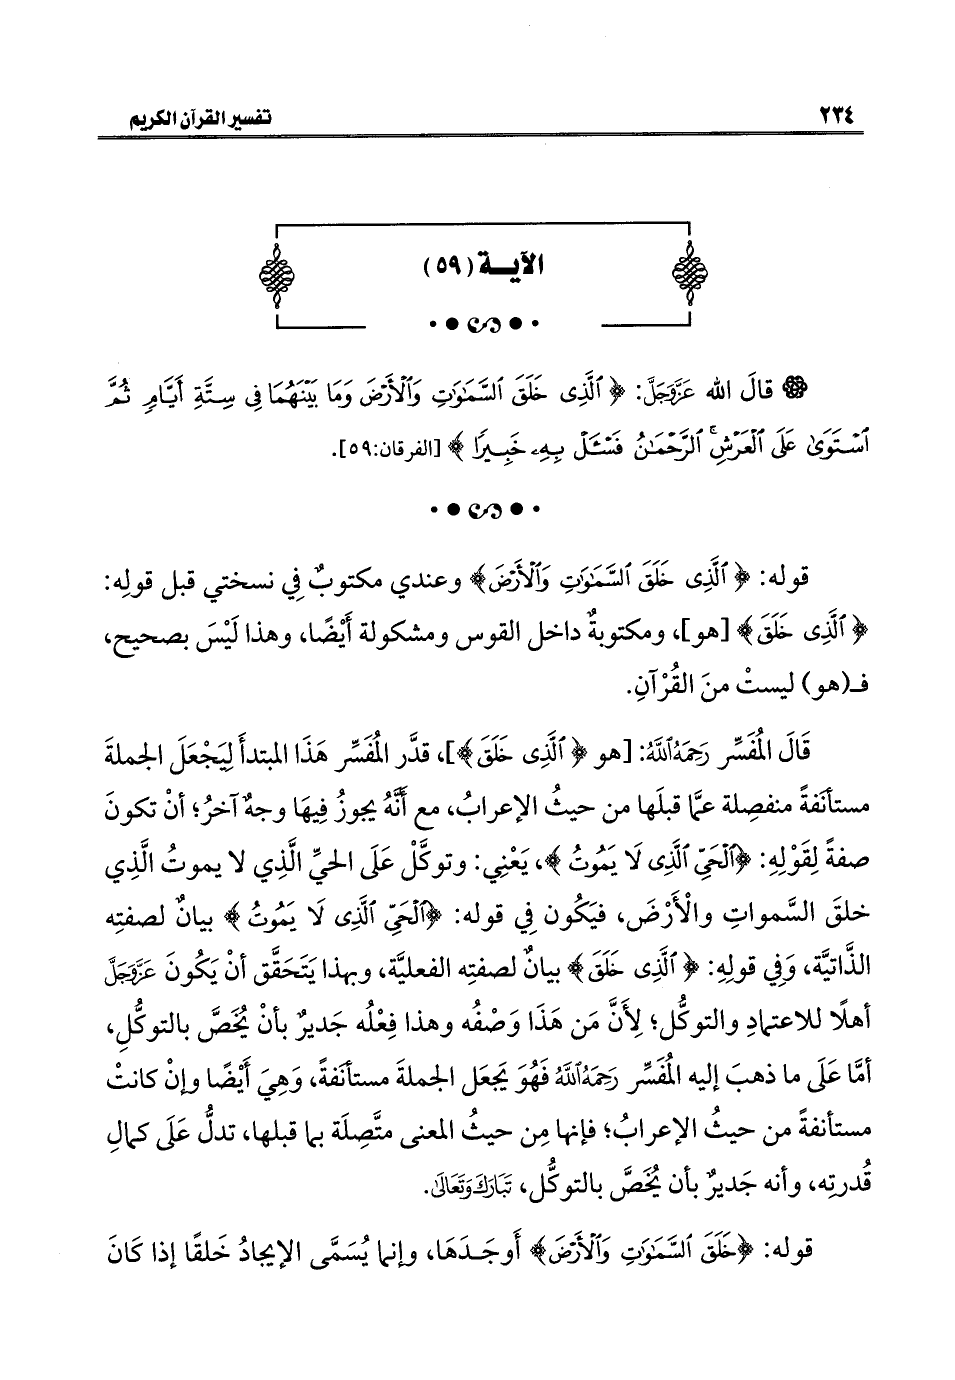 ٢٣٤ تفسير القرآن الكريم
الآيــة (٥٩)
قالَ الله عَزَّوَجَلَّ: ﴿ٱلَّذِى خَلَقَ ٱلسَّمَٰوَٰتِ وَٱلْأَرْضَ وَمَا بَيْنَهُمَا فِى سِتَّةِ أَيَّامٍ ثُمَّ
ٱسْتَوَىٰ عَلَى ٱلْعَرْشِ ۚ ٱلرَّحْمَٰنُ فَسْـَٔلْ بِهِۦ خَبِيرًا﴾ [الفرقان:٥٩].
قوله: ﴿ٱلَّذِى خَلَقَ ٱلسَّمَٰوَٰتِ وَٱلْأَرْضَ﴾ وعندي مكتوبٌ فِي نسختي قبل قولِه:
﴿ٱلَّذِى خَلَقَ﴾ [هو]، ومكتوبةٌ داخل القوس ومشكولة أَيْضًا، وهذا لَيْسَ بصحيح،
فـ(هو) ليستْ منَ القُرْآنِ.
قَالَ المُفَسِّر رَحِمَهُ ٱللَّهُ: [هو ﴿ٱلَّذِى خَلَقَ﴾]، قدَّر المُفَسِّر هَذَا المبتدأَ لِيَجْعَلَ الجملةَ
مستأنَفةً منفصِلة عمَّا قبلَها من حيثُ الإعرابُ، مع أَنَّهُ يجوزُ فِيهَا وجهٌ آخرُ؛ أنْ تكونَ
صفةً لِقَوْلِهِ: ﴿ٱلْحَىِّ ٱلَّذِى لَا يَمُوتُ﴾، يَعْنِي: وتوكَّلْ عَلَى الحيِّ الَّذِي لا يموتُ الَّذِي
خلقَ السَّمواتِ والْأَرْضَ، فيَكُون فِي قوله: ﴿ٱلْحَىِّ ٱلَّذِى لَا يَمُوتُ﴾ بيانٌ لصفتِه
الذَّاتيَّة، وَفِي قولِهِ: ﴿ٱلَّذِى خَلَقَ﴾ بيانٌ لصفتِه الفعليَّة، وبهذا يَتَحَقَّق أنْ يَكُونَ عَزَّوَجَلَّ
أهلًا للاعتمادِ والتوكُّل؛ لِأَنَّ مَن هَذَا وَصْفُه وهذا فِعْلُه جَديرٌ بأنْ يُخَصَّ بالتوكُّلِ،
أمَّا عَلَى ما ذهبَ إليه المُفَسِّر رَحِمَهُ ٱللَّهُ فَهُوَ يَجعَل الجملةَ مستأنَفةً، وَهِيَ أَيْضًا وإنْ كانتْ
مستأنفةً من حيثُ الإعرابُ؛ فإنها مِن حيثُ المعنى متَّصِلَة بما قبلها، تدلُّ عَلَى كمالِ
قُدرتِه، وأنه جَديرٌ بأن يُخَصَّ بالتوكُّل، تَبَارَكَ وَتَعَالَىٰ.
قوله: ﴿خَلَقَ ٱلسَّمَٰوَٰتِ وَٱلْأَرْضَ﴾ أَوجَـدَهَا، وإنما يُسَمَّى الإيجادُ خَلقًا إذا كَانَ